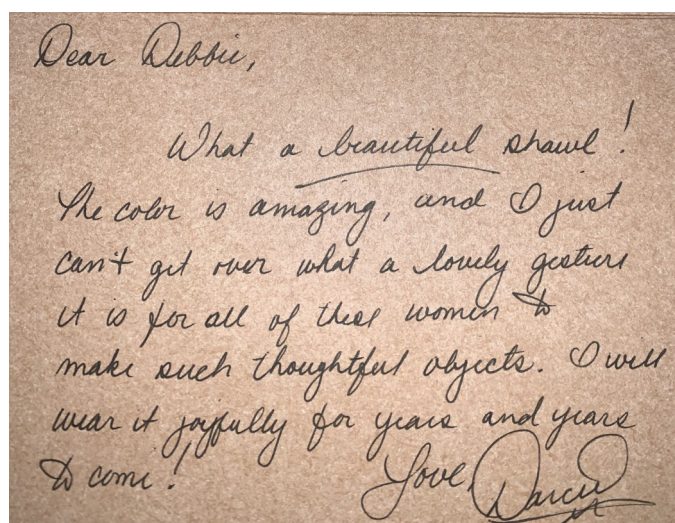 Dear Debbie,
What a beautiful shawl!
The color is amazing, and I just
can't get over what a lovely gesture
it is for all of these women to
make such thoughtful objects. I will
wear it joyfully for years and years
to come! Love, Darcie